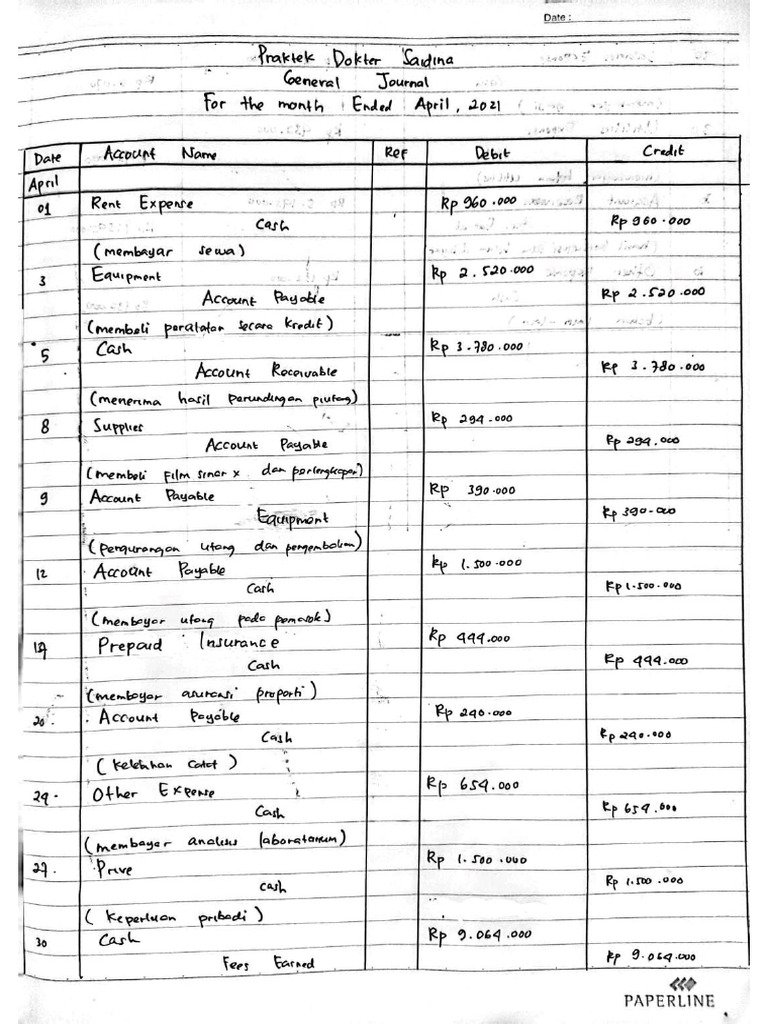 Date :
Praktek Dokter Saidina
General Journal
For the month Ended April, 2021
Date Account Name Ref Debit Credit
April
01 Rent Expense Rp 960.000
Cash Rp 960.000
(membayar sewa)
3 Equipment Rp 2.520.000
Account Payable Rp 2.520.000
(membeli peralatan secara kredit)
5 Cash Rp 3.780.000
Account Receivable Rp 3.780.000
(menerima hasil perundingan piutang)
8 Supplies Rp 294.000
Account Payable Rp 294.000
(membeli Film sinar x dan perlengkapan)
9 Account Payable Rp 390.000
Equipment Rp 390.000
(pengurangan utang dan pengembalian)
12 Account Payable Rp 1.500.000
Cash Rp 1.500.000
(membayar utang pada pemasok)
17 Prepaid Insurance Rp 444.000
Cash Rp 444.000
(membayar asuransi properti)
20. Account Payable Rp 240.000
Cash Rp 240.000
(Kelebihan catat)
24. Other Expense Rp 654.000
Cash Rp 654.000
(membayar analisis laboratorium)
27. Prive Rp 1.500.000
Cash Rp 1.500.000
(Keperluan pribadi)
30 Cash Rp 9.064.000
Fees Earned Rp 9.064.000
PAPERLINE